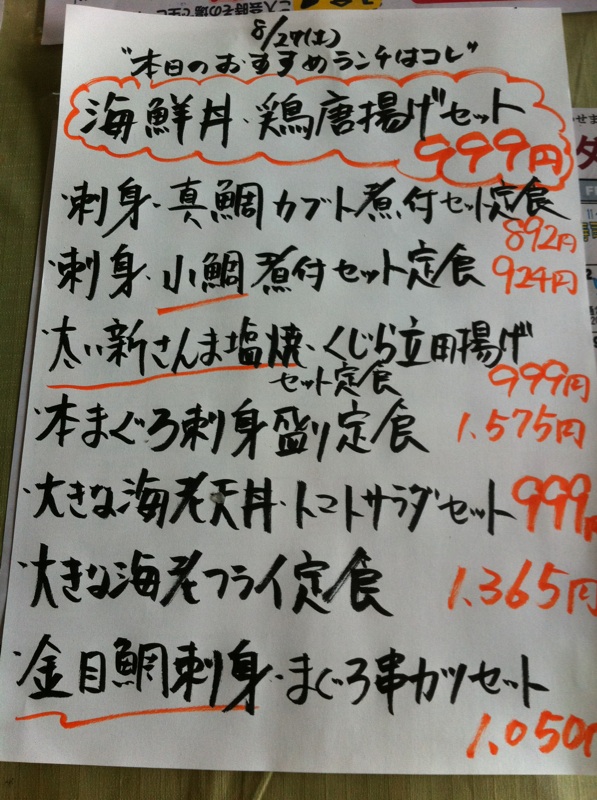 ご入会時その場で生ビ
8/27(土)
"本日のおすすめランチはコレ"
海鮮丼・鶏唐揚げセット
999円
・刺身・真鯛カブト煮付セット定食
892円
・刺身・小鯛煮付セット定食 924円
・太い新さんま塩焼・くじら立田揚げ
セット定食 999円
・本まぐろ刺身盛り定食 1.575円
・大きな海老天丼・トマトサラダセット 999円
・大きな海老フライ定食 1.365円
・金目鯛刺身・まぐろ串カツセット
1.050円